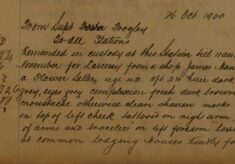 26 Oct 1900
From Supt Frogley
To all Stations
Remanded in custody at this Station till
November for Larceny from a shop James
a Flower Seller, age 5ft hair dark
grey, eyes grey complexion fresh dark brown
moustache otherwise clean shaven marks
on top of left cheek tattooed on right arm
of arms and bracelet on left forearm
at common lodging Houses Kindly